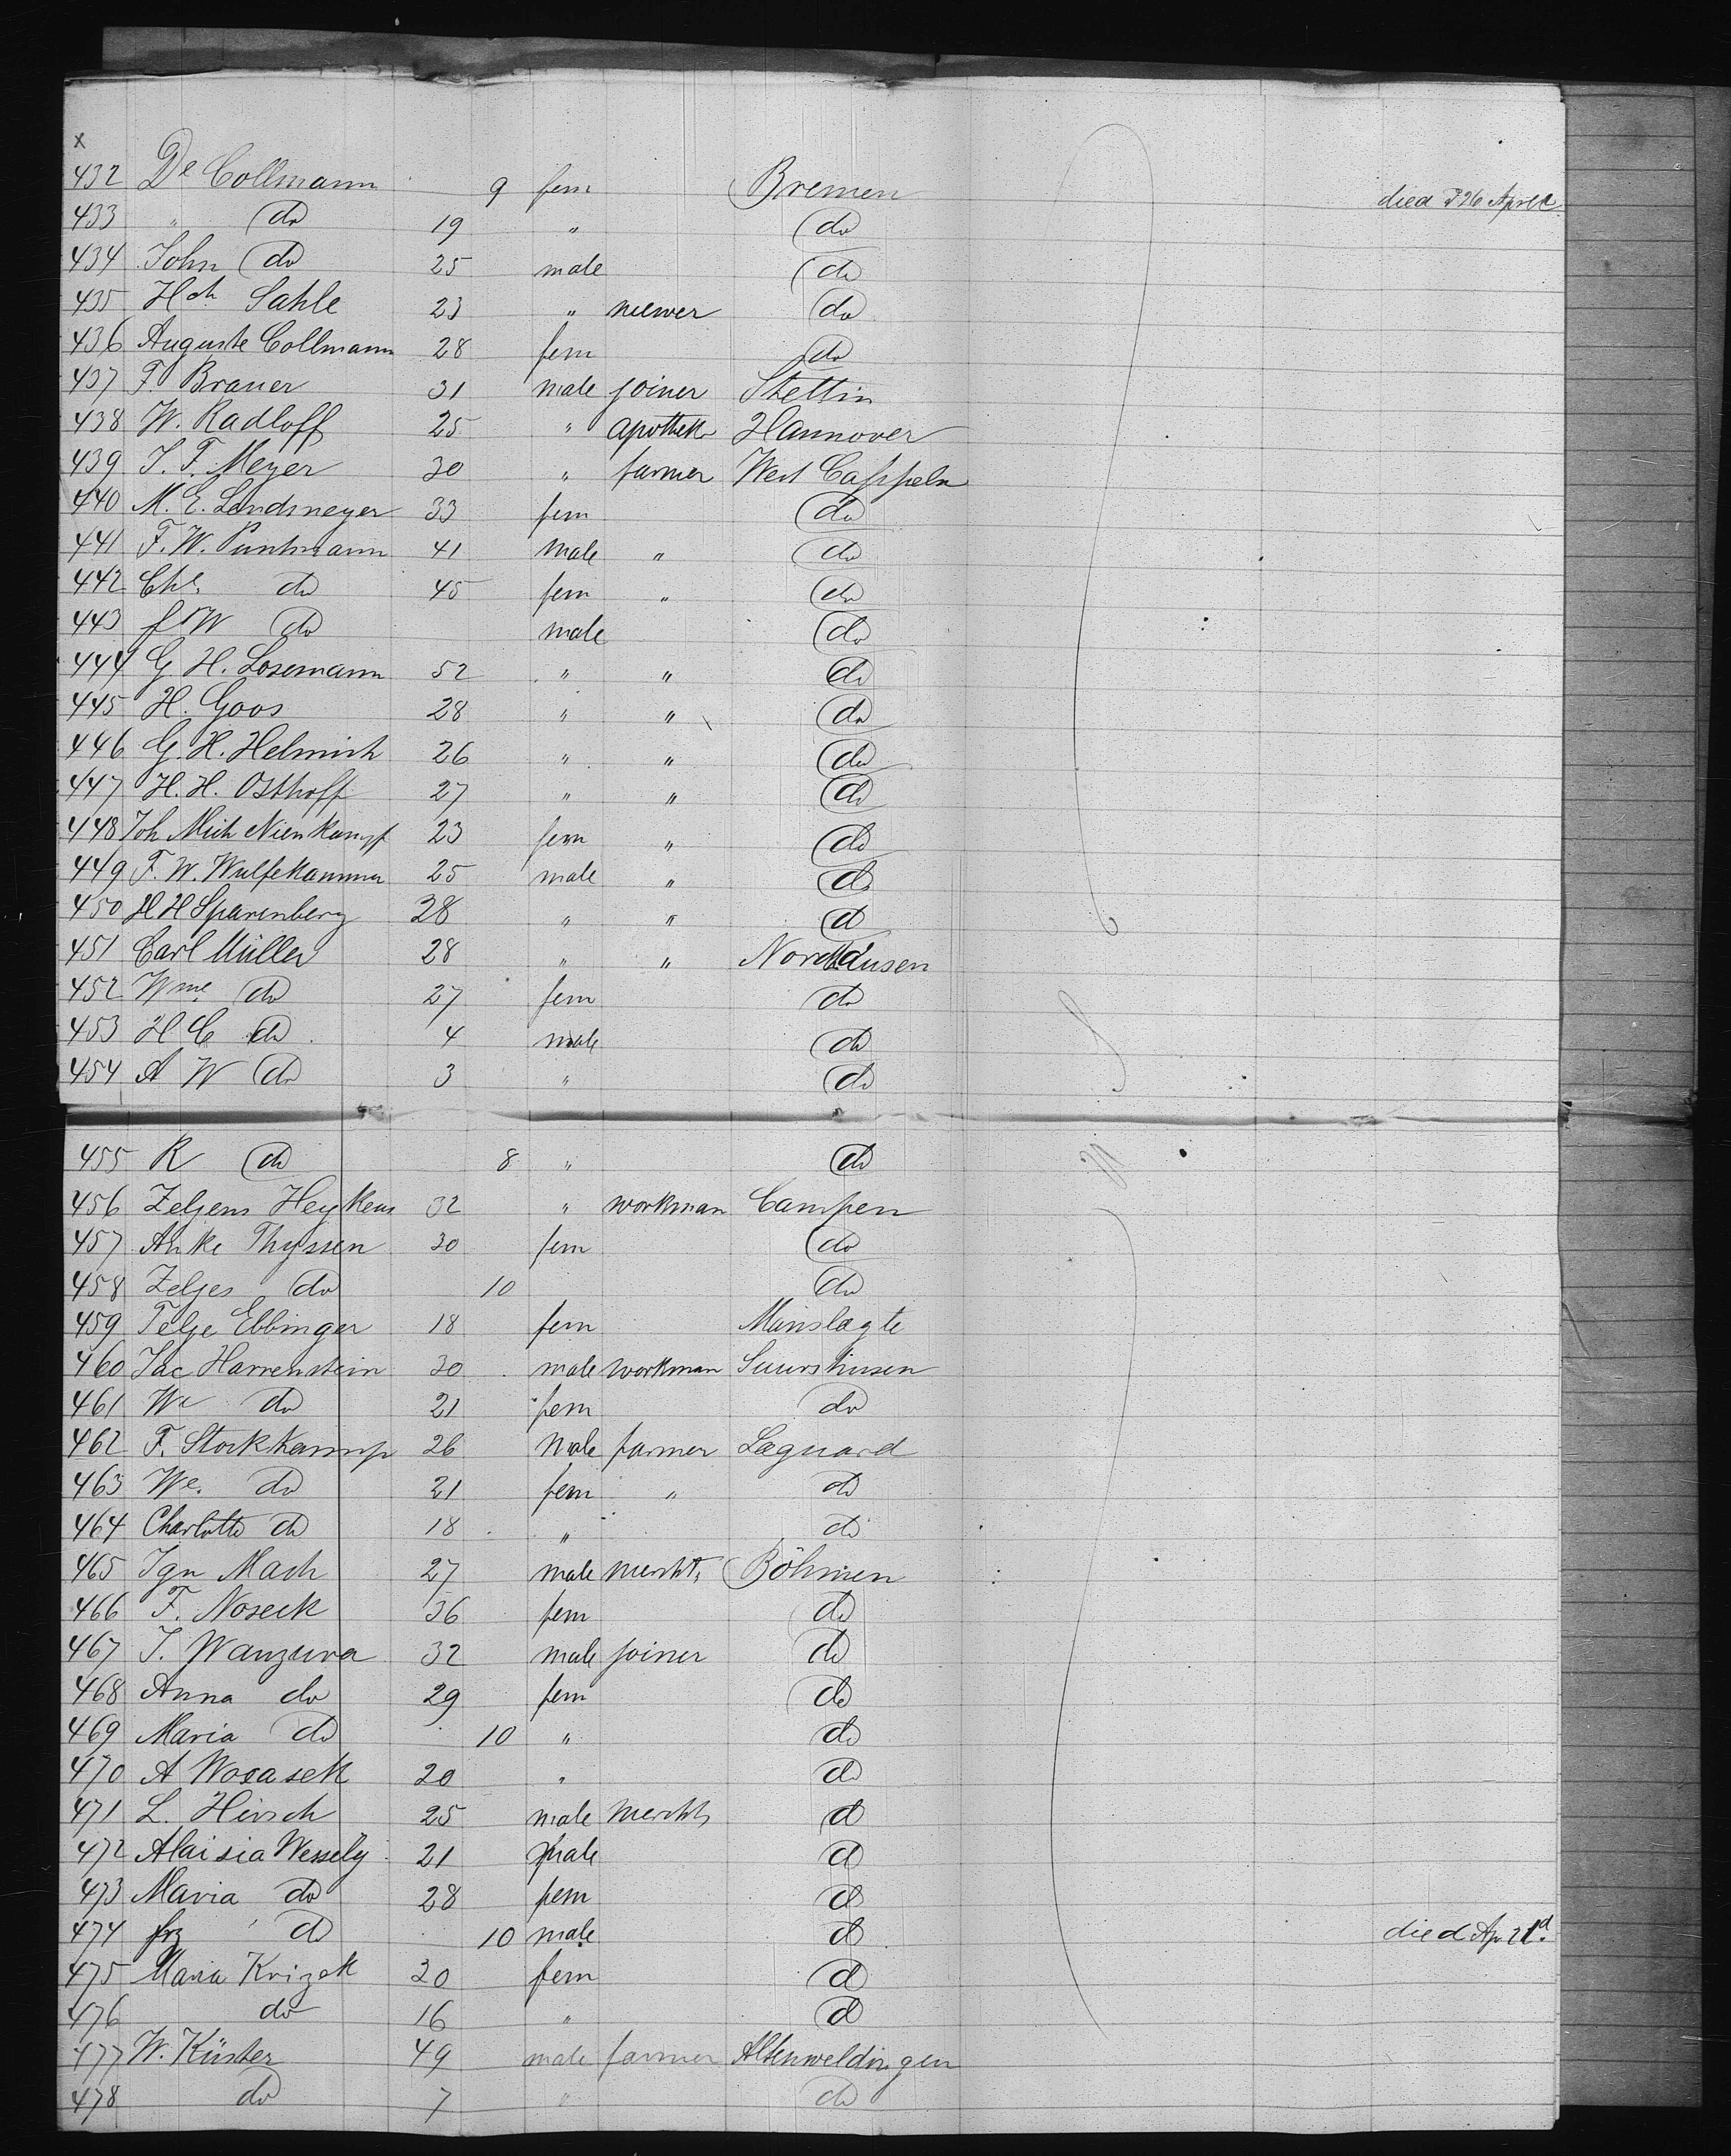 x
432 De Collmann 9 fem Bremen died 26 April
433 " do 19 " do
434 John do 25 male do
435 Hch Sahle 23 " do
436 Auguste Collmann 28 fem do
437 F. Brauer 31 male joiner Stettin
438 W. Radloff 25 " apothek Hannover
439 J. F. Meyer 30 " farmer West Cappeln
440 M. E. Landsmeyer 33 fem do
441 F. W. Puntmann 41 male " do
442 Che. do 45 fem " do
443 W do male do
444 G. H. Losemann 52 " " do
445 H. Goos 28 " " do
446 G. H. Helmich 26 " " do
447 H. H. Osthoff 27 " " do
448 Joh Mich Nienkampf 23 fem " do
449 F. W. Wulfekammer 25 male " do
450 H H Sparenberg 28 " " do
451 Carl Müller 28 " " Nordhausen
452 Wme do 27 fem do
453 H C do 4 male do
454 A W do 3 " do
455 R do 8 " do
456 Zeljens Heykens 32 " workman Campen
457 Anke Thyssen 30 fem do
458 Zeljes do 10 do
459 Telje Ebbinger 18 fem Manslagte
460 Jac Harrenstein 30 male workman Suurshusen
461 We do 21 fem do
462 F. Stockkamp 26 male farmer Laguard
463 We. do 21 fem " do
464 Charlotte do 18 " do
465 Ign Mach 27 male mercht, Böhmen
466 F. Noseck 36 fem do
467 J. Wanzura 32 male joiner do
468 Anna do 29 fem do
469 Maria do 10 " do
470 A Wosasek 20 " do
471 L. Hirsch 25 male mercht, do
472 Alaisia Wessely 21 male do
473 Maria do 28 fem do
474 frz do 10 male do died Ap 21d.
475 Maria Krizek 20 fem do
476 do 16 " do
477 W. Küster 49 male farmer Altenweldingen
478 do 7 " do